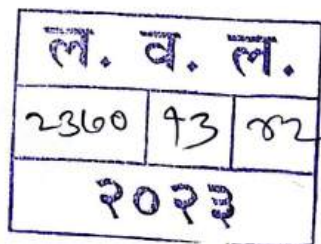 ल. व. ल.
२३७० १३ ४२
२०२३